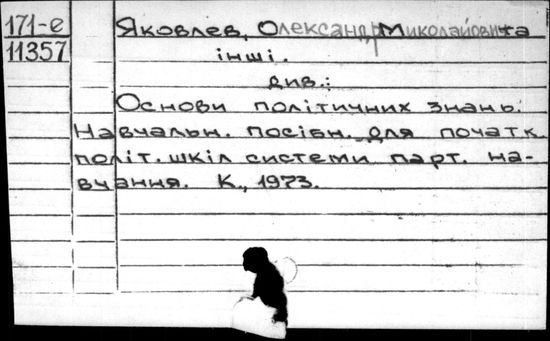 171-е Яковлев, Олександр Миколайович та
11357 інші.
див.:
Основи політичних знань:
Навчальн. посібн. для початк.
політ. шкіл системи парт. на-
вчання. К., 1973.